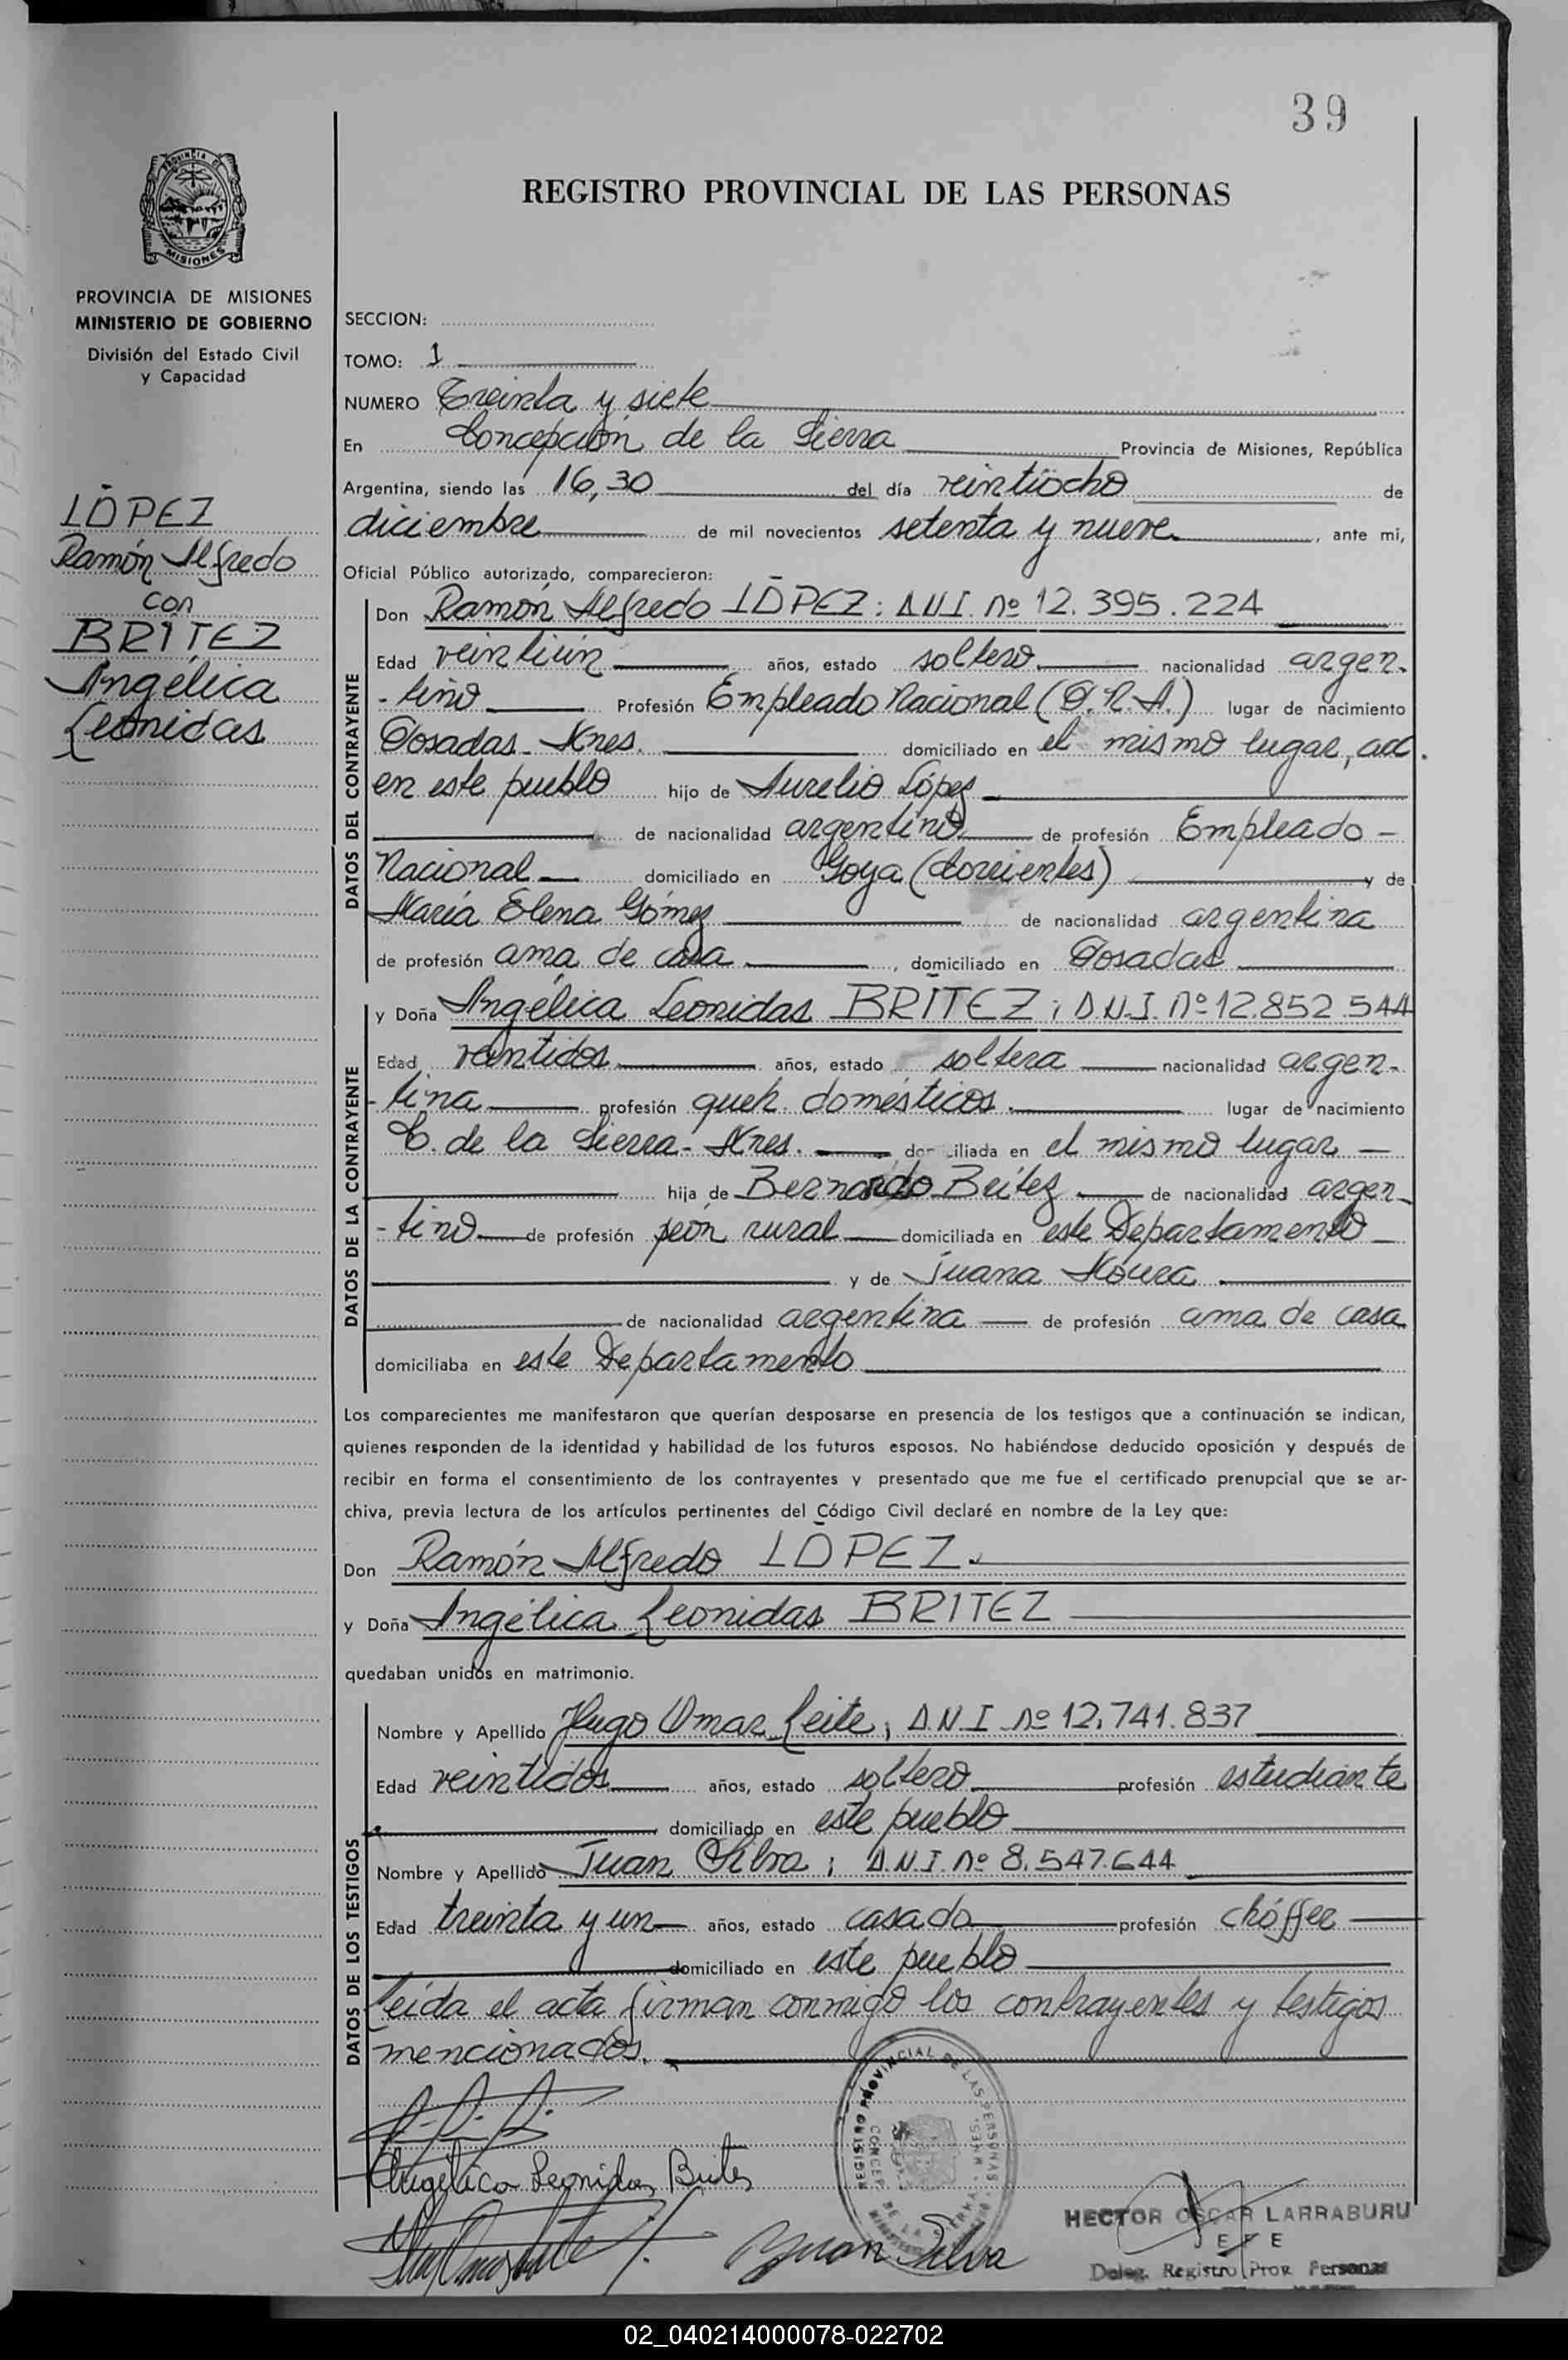 39
REGISTRO PROVINCIAL DE LAS PERSONAS
PROVINCIA DE MISIONES
MINISTERIO DE GOBIERNO
División del Estado Civil
y Capacidad
LÓPEZ
Ramón Alfredo
con
BRITEZ
Angélica
Leonidas
SECCION:
TOMO: 1
NUMERO Treinta y siete
En Concepción de la Sierra Provincia de Misiones, República
Argentina, siendo las 16,30 del día veintiocho de
diciembre de mil novecientos setenta y nueve, ante mi,
Oficial Público autorizado, comparecieron:
DATOS DEL CONTRAYENTE
Don Ramón Alfredo LÓPEZ: D.N.I. Nº 12.395.224
Edad veintiún años, estado soltero nacionalidad argen-
-tino Profesión Empleado Nacional (P.N.A.) lugar de nacimiento
Posadas - Mnes. domiciliado en el mismo lugar, acc.
en este pueblo hijo de Aurelio López
de nacionalidad argentino de profesión Empleado -
Nacional domiciliado en Goya (Corrientes) y de
María Elena Gómez de nacionalidad argentina
de profesión ama de casa, domiciliado en Posadas
DATOS DE LA CONTRAYENTE
y Doña Angélica Leonidas BRITEZ; D.N.I. Nº 12.852.544
Edad veintidos años, estado soltera nacionalidad argen-
-tina profesión queh. domésticos. lugar de nacimiento
C. de la Sierra - Mnes. domiciliada en el mismo lugar -
hija de Bernardo Britez de nacionalidad argen-
-tino de profesión peón rural domiciliada en este Departamento
y de Juana Moura
de nacionalidad argentina de profesión ama de casa
domiciliaba en este Departamento
Los comparecientes me manifestaron que querían desposarse en presencia de los testigos que a continuación se indican,
quienes responden de la identidad y habilidad de los futuros esposos. No habiéndose deducido oposición y después de
recibir en forma el consentimiento de los contrayentes y presentado que me fue el certificado prenupcial que se ar-
chiva, previa lectura de los artículos pertinentes del Código Civil declaré en nombre de la Ley que:
Don Ramón Alfredo LÓPEZ.
y Doña Angélica Leonidas BRITEZ
quedaban unidos en matrimonio.
DATOS DE LOS TESTIGOS
Nombre y Apellido Hugo Omar Leite; D.N.I. Nº 12.741.837
Edad veintidos años, estado soltero profesión estudiante
domiciliado en este pueblo
Nombre y Apellido Juan Silva; D.N.I. Nº 8.547.644
Edad treinta y un años, estado casado profesión chóffer
domiciliado en este pueblo
Leída el acta firman conmigo los contrayentes y testigos
mencionados.
REGISTRO PROVINCIAL DE LAS PERSONAS
Angélica Leonidas Brites
Juan Silva
HECTOR OSCAR LARRABURU
JEFE
Deleg. Registro Prov. Personas
02_040214000078-022702